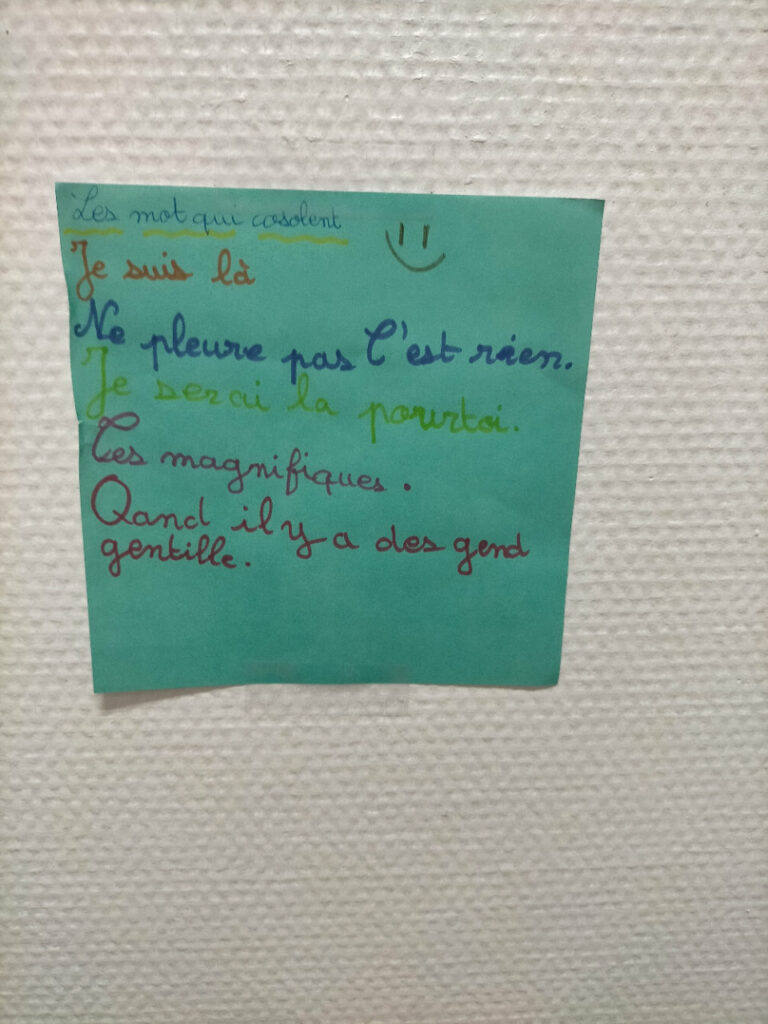 Les mot qui cosolent
Je suis là
Ne pleure pas C'est rien.
Je serai la pourtoi.
Tes magnifiques.
Qand il y a des gend
gentille.